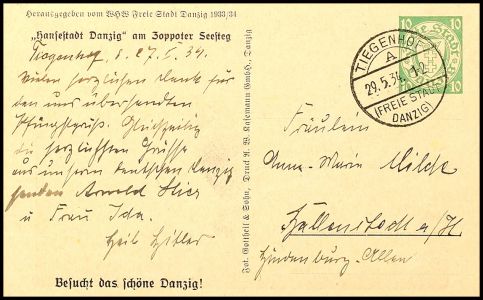 Herausgegeben vom WHW Freie Stadt Danzig 1933/34
„Hansestadt Danzig“ am Zoppoter Seesteg
Tiegenhof, d. 27. 5. 34.
Vielen herzlichen Dank für
den uns übersandten
Pfingstgruß. Gleichzeitig
die herzlichsten Grüsse
aus unserem deutschen Danzig
senden Arnold
u Frau Ida.
Heil Hitler
Besucht das schöne Danzig!
Fot. Gottheil & Sohn, Druck A. W. Kafemann GmbH., Danzig
10 10
10 10
TIEGENHOF
A
29.5.34. 1-2
(FREIE STADT
DANZIG)
Fräulein
Anna-Marie Milde
Ballenstedt a/H
Hindenburg-Allee